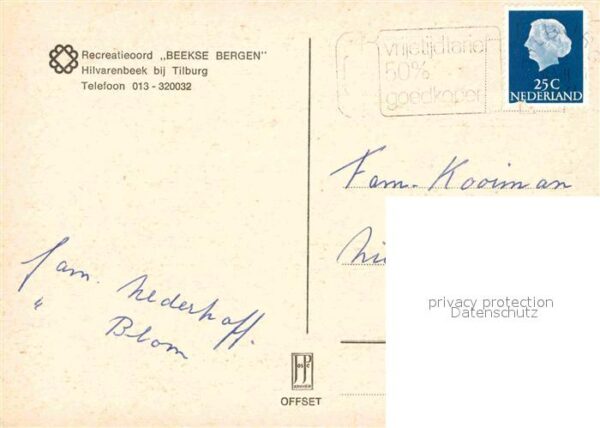 Recreatieoord „BEEKSE BERGEN"
Hilvarenbeek bij Tilburg
Telefoon 013 - 320032
vrije tijdtarief
50%
goedkoper
25 C
NEDERLAND
Fam. Kooiman
privacy protection
Datenschutz
fam. Nederhoff.
" Blom
OFFSET